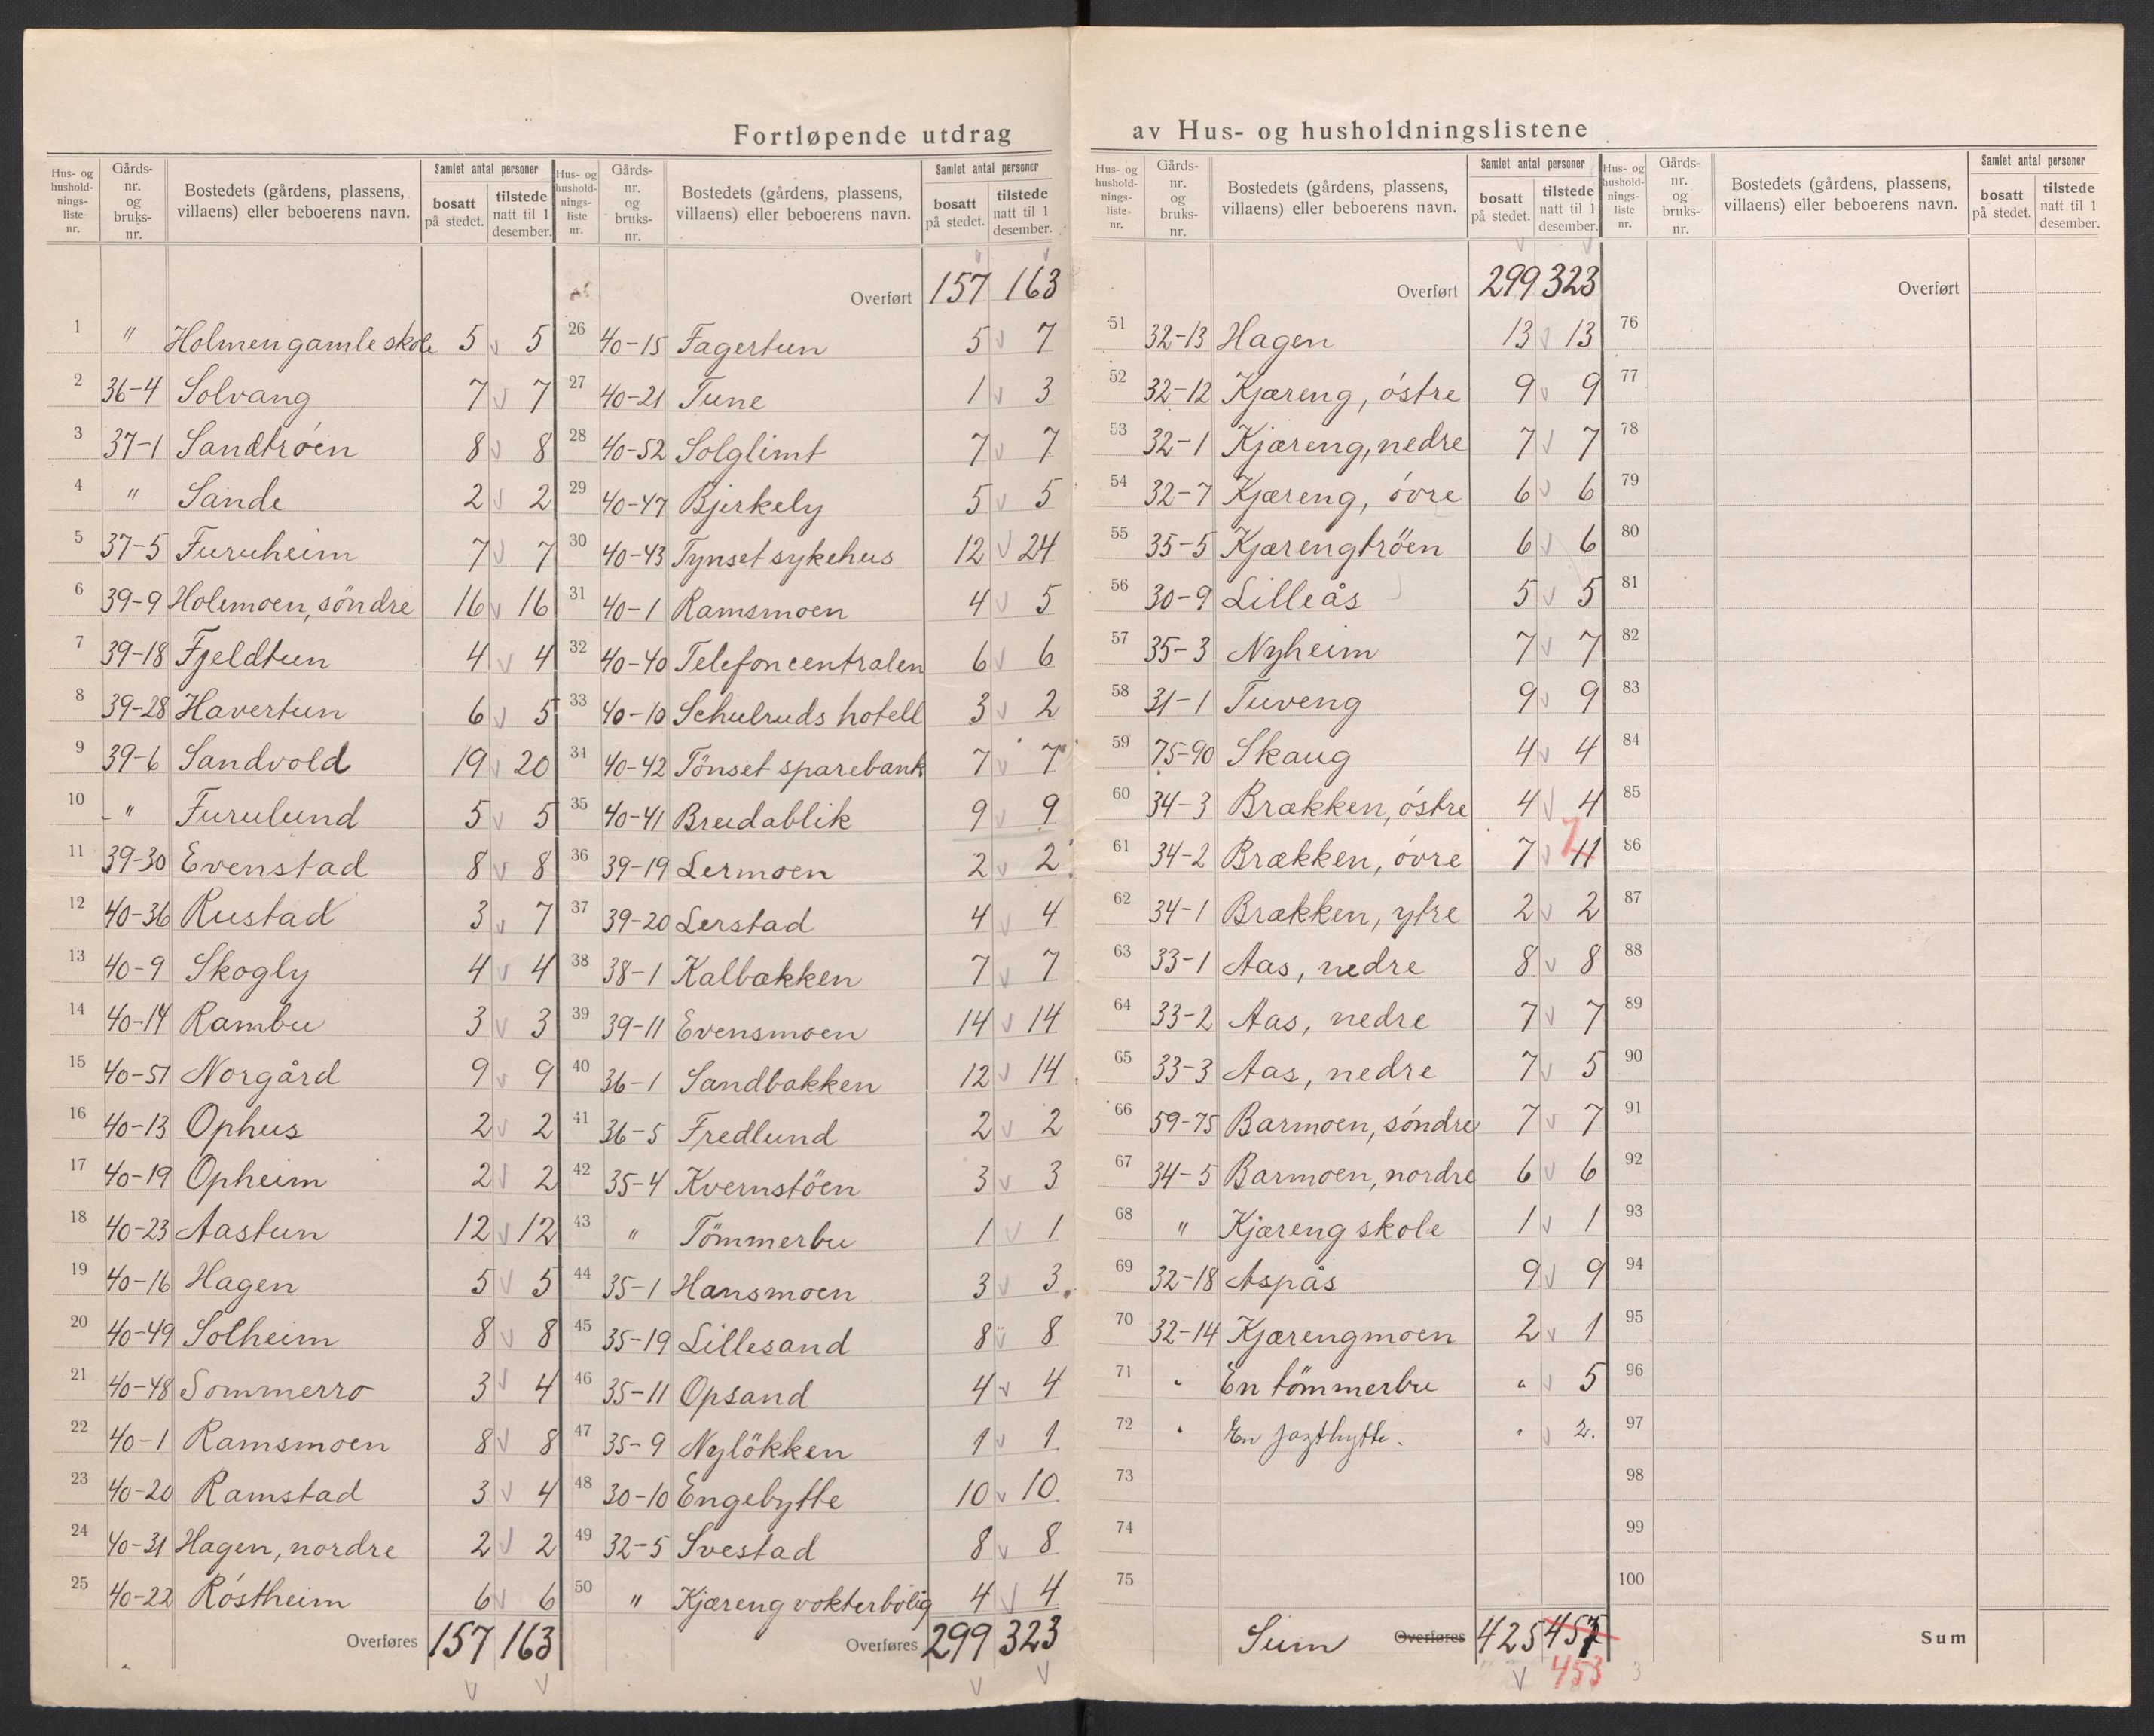 Fortløpende utdrag av Hus- og husholdningslistene
Hus- og hushold-nings-liste nr. | Gårds-nr. og bruks-nr. | Bostedets (gårdens, plassens, villaens) eller beboerens navn. | Samlet antal personer | bosatt på stedet. | tilstede natt til 1 desember.
1 " Holmen gamle skole 5 5
2 36-4 Solvang 7 7
3 37-1 Sandtröen 8 8
4 " Sande 2 2
5 37-5 Furuheim 7 7
6 39-9 Holmoen, söndre 16 16
7 39-18 Fjeldtun 4 4
8 39-28 Havertun 6 5
9 39-6 Sandvold 19 20
10 -" Furulund 5 5
11 39-30 Evenstad 8 8
12 40-36 Rustad 3 7
13 40-9 Skogly 4 4
14 40-14 Rambu 3 3
15 40-51 Norgård 9 9
16 40-13 Ophus 2 2
17 40-19 Opheim 2 2
18 40-23 Aastun 12 12
19 40-16 Hagen 5 5
20 40-49 Solheim 8 8
21 40-48 Sommerro 3 4
22 40-1 Ramsmoen 8 8
23 40-20 Ramstad 3 4
24 40-31 Hagen, nordre 2 2
25 40-22 Röstheim 6 6
Overføres 157 163
Hus- og hushold-nings-liste nr. | Gårds-nr. og bruks-nr. | Bostedets (gårdens, plassens, villaens) eller beboerens navn. | Samlet antal personer | bosatt på stedet. | tilstede natt til 1 desember.
Overført 157 163
26 40-15 Fagertun 5 7
27 40-21 Tune 1 3
28 40-52 Solglimt 7 7
29 40-47 Bjerkely 5 5
30 40-43 Tynset sykehus 12 24
31 40-1 Ramsmoen 4 5
32 40-40 Telefoncentralen 6 6
33 40-10 Schulruds hotell 3 2
34 40-42 Tönset sparebank 7 7
35 40-41 Breidablik 9 9
36 39-19 Lermoen 2 2
37 39-20 Lerstad 4 4
38 38-1 Kalbækken 7 7
39 39-11 Evensmoen 14 14
40 36-1 Sandbakken 12 14
41 36-5 Fredlund 2 2
42 35-4 Kvernstöen 3 3
43 " Tömmerbu 1 1
44 35-1 Hansmoen 3 3
45 35-19 Lillesand 8 8
46 35-11 Opsand 4 4
47 35-9 Nylökken 1 1
48 30-10 Engebytte 10 10
49 32-5 Svestad 8 8
50 " Kjæreng vokterbolig 4 4
Overføres 299 323
Hus- og hushold-nings-liste nr. | Gårds-nr. og bruks-nr. | Bostedets (gårdens, plassens, villaens) eller beboerens navn. | Samlet antal personer | bosatt på stedet. | tilstede natt til 1 desember.
Overført 299 323
51 32-13 Hagen 13 13
52 32-12 Kjæreng, östre 9 9
53 32-1 Kjæreng, nedre 7 7
54 32-7 Kjæreng, övre 6 6
55 35-5 Kjærengtröen 6 6
56 30-9 Lilleås 5 5
57 35-3 Nyheim 7 7
58 31-1 Tuveng 9 9
59 75-90 Skaug 4 4
60 34-3 Brækken, östre 4 4
61 34-2 Brækken, övre 7 11 7
62 34-1 Brækken, ytre 2 2
63 33-1 Aas, nedre 8 8
64 33-2 Aas, nedre 7 7
65 33-3 Aas, nedre 7 5
66 59-75 Barmoen, söndre 7 7
67 34-5 Barmoen, nordre 6 6
68 " Kjæreng skole 1 1
69 32-18 Aspås 9 9
70 32-14 Kjærengmoen 2 1
71 " En tömmerbu " 5
72 " En jagthytte. " 2.
73
74
75
Sum Overføres 425 457
453 3
Hus- og hushold-nings-liste nr. | Gårds-nr. og bruks-nr. | Bostedets (gårdens, plassens, villaens) eller beboerens navn. | Samlet antal personer | bosatt på stedet. | tilstede natt til 1 desember.
Overført
76
77
78
79
80
81
82
83
84
85
86
87
88
89
90
91
92
93
94
95
96
97
98
99
100
Sum